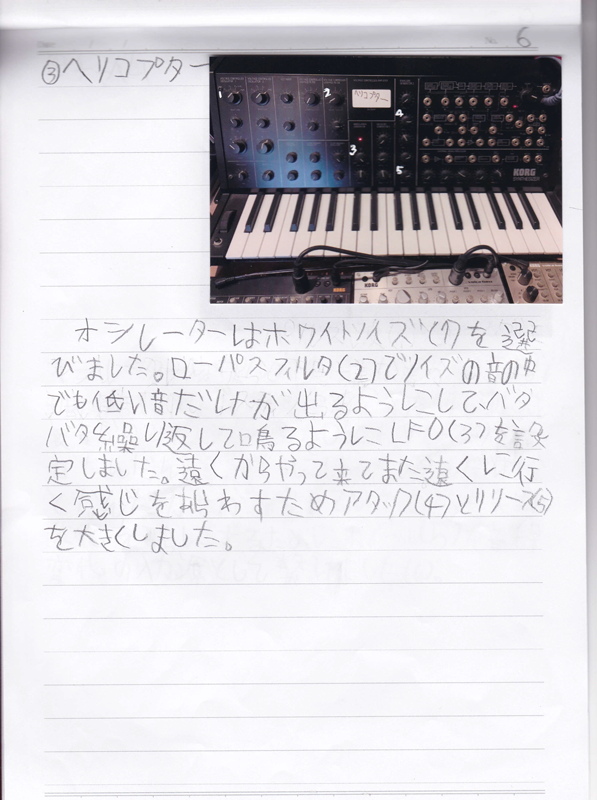 6
③ヘリコプター
1
2
ヘリコプター
4
3
5
KORG
KORG
オシレーターはホワイトノイズ(1)を選
びました。ローパスフィルタ(2)でノイズの音の中
でも低い音だけが出るようにして、バタ
バタ繰り返して鳴るようにLFO(3)を設
定しました。遠くからやって来てまた遠くに行
く感じを表わすためアタック(4)とリリース(5)
を大きくしました。